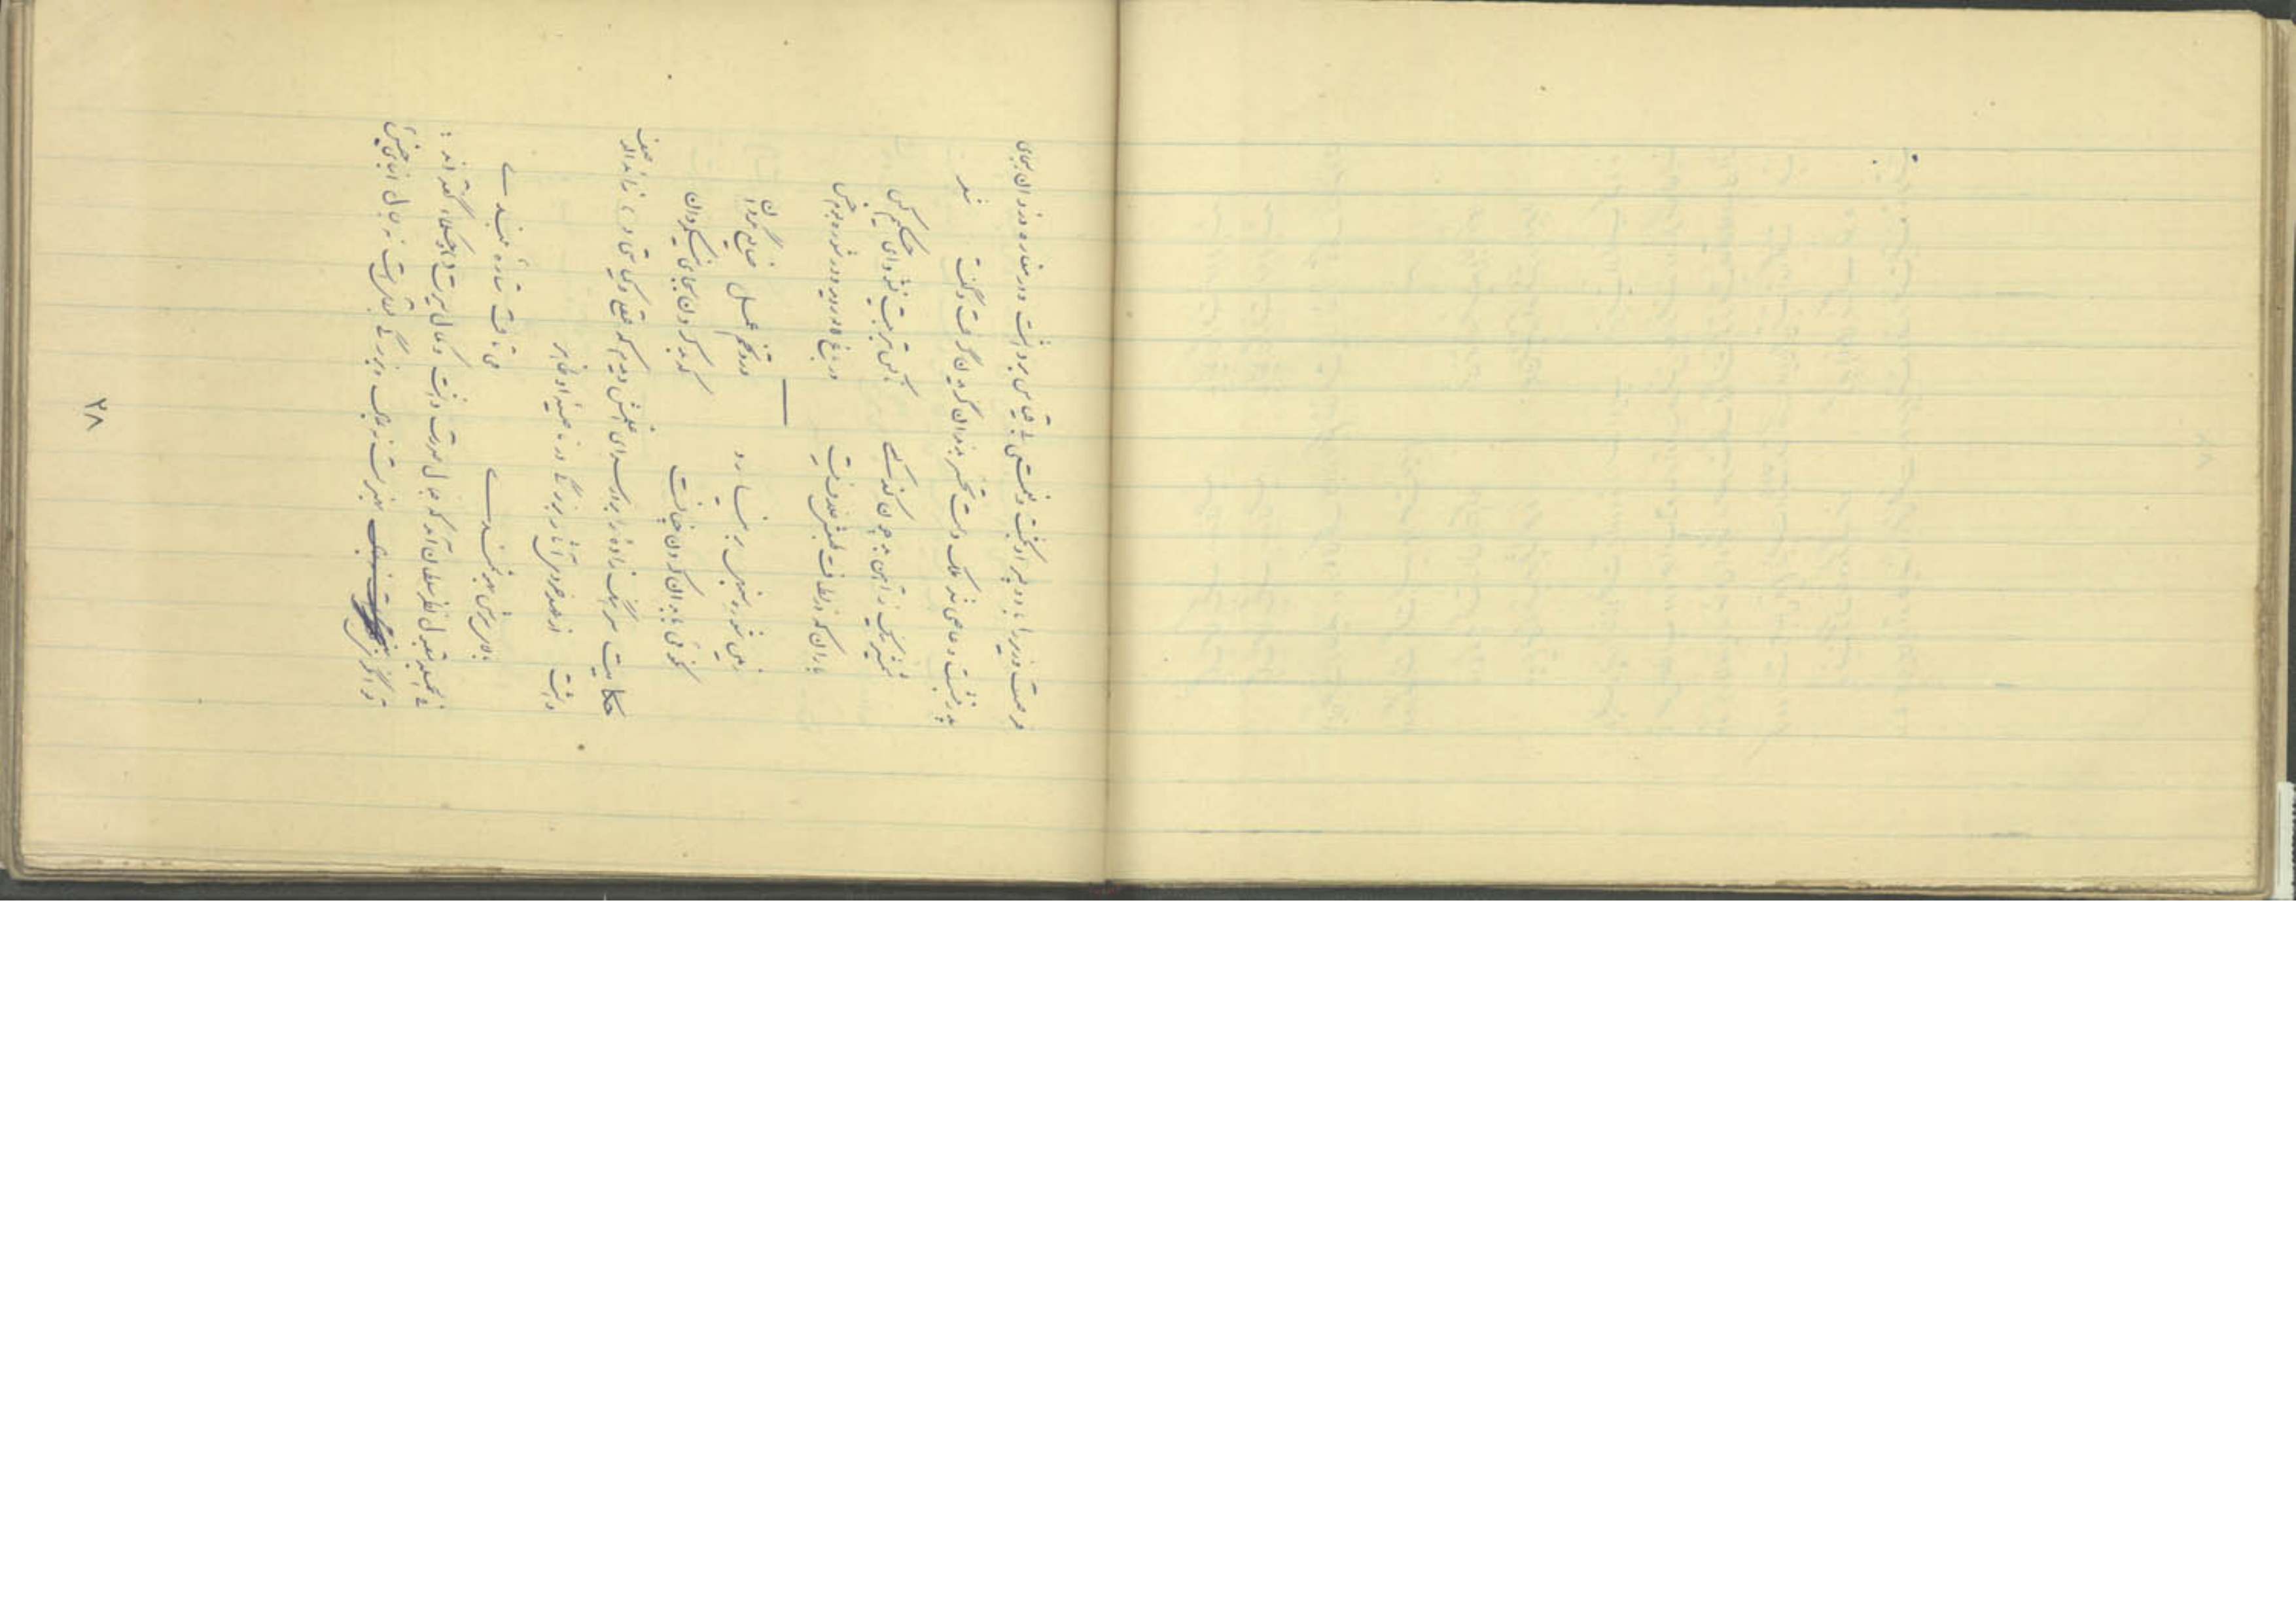 فرصت وزیر را با دو پسر او بکشت و نعمتی بی قیاس برداشت و در مغاره دزدان بجای
پدر نشست و عاصی شد ملک دست تحسر بدندان گزیدن گرفت و گفت شعر
شمشیر نیک ز آهن بد چون کند کسے ناکس بتربیت نشود ای حکیم کس
باران که در لطافت طبعش خلاف نیست در باغ لاله روید و در شوره بوم خس
زمین شوره سنبل بر نیارد درو تخم عمل ضایع مگردان
نکوئی با بدان کردن چنانست که بد کردن بجای نیکمردان
حکایت سرهنگ زاده را بر در سرای اغلمش دیدم که عقل و کیاستی و زائد الوصف
داشت از عهد خوردی آثار بزرگے در ناصیهٔ او ظاهر
بالای سرش ز هوشمندے می تافت ستارهٔ بلندے
فی الجمله مقبول نظر سلطان آمد که جمال صورت داشت و کمال سیرت و حکماء گفته اند :
توانگری بهنرست نه بمال و بزرگے بعقل است نه بسال ابنای جنس
٢٨